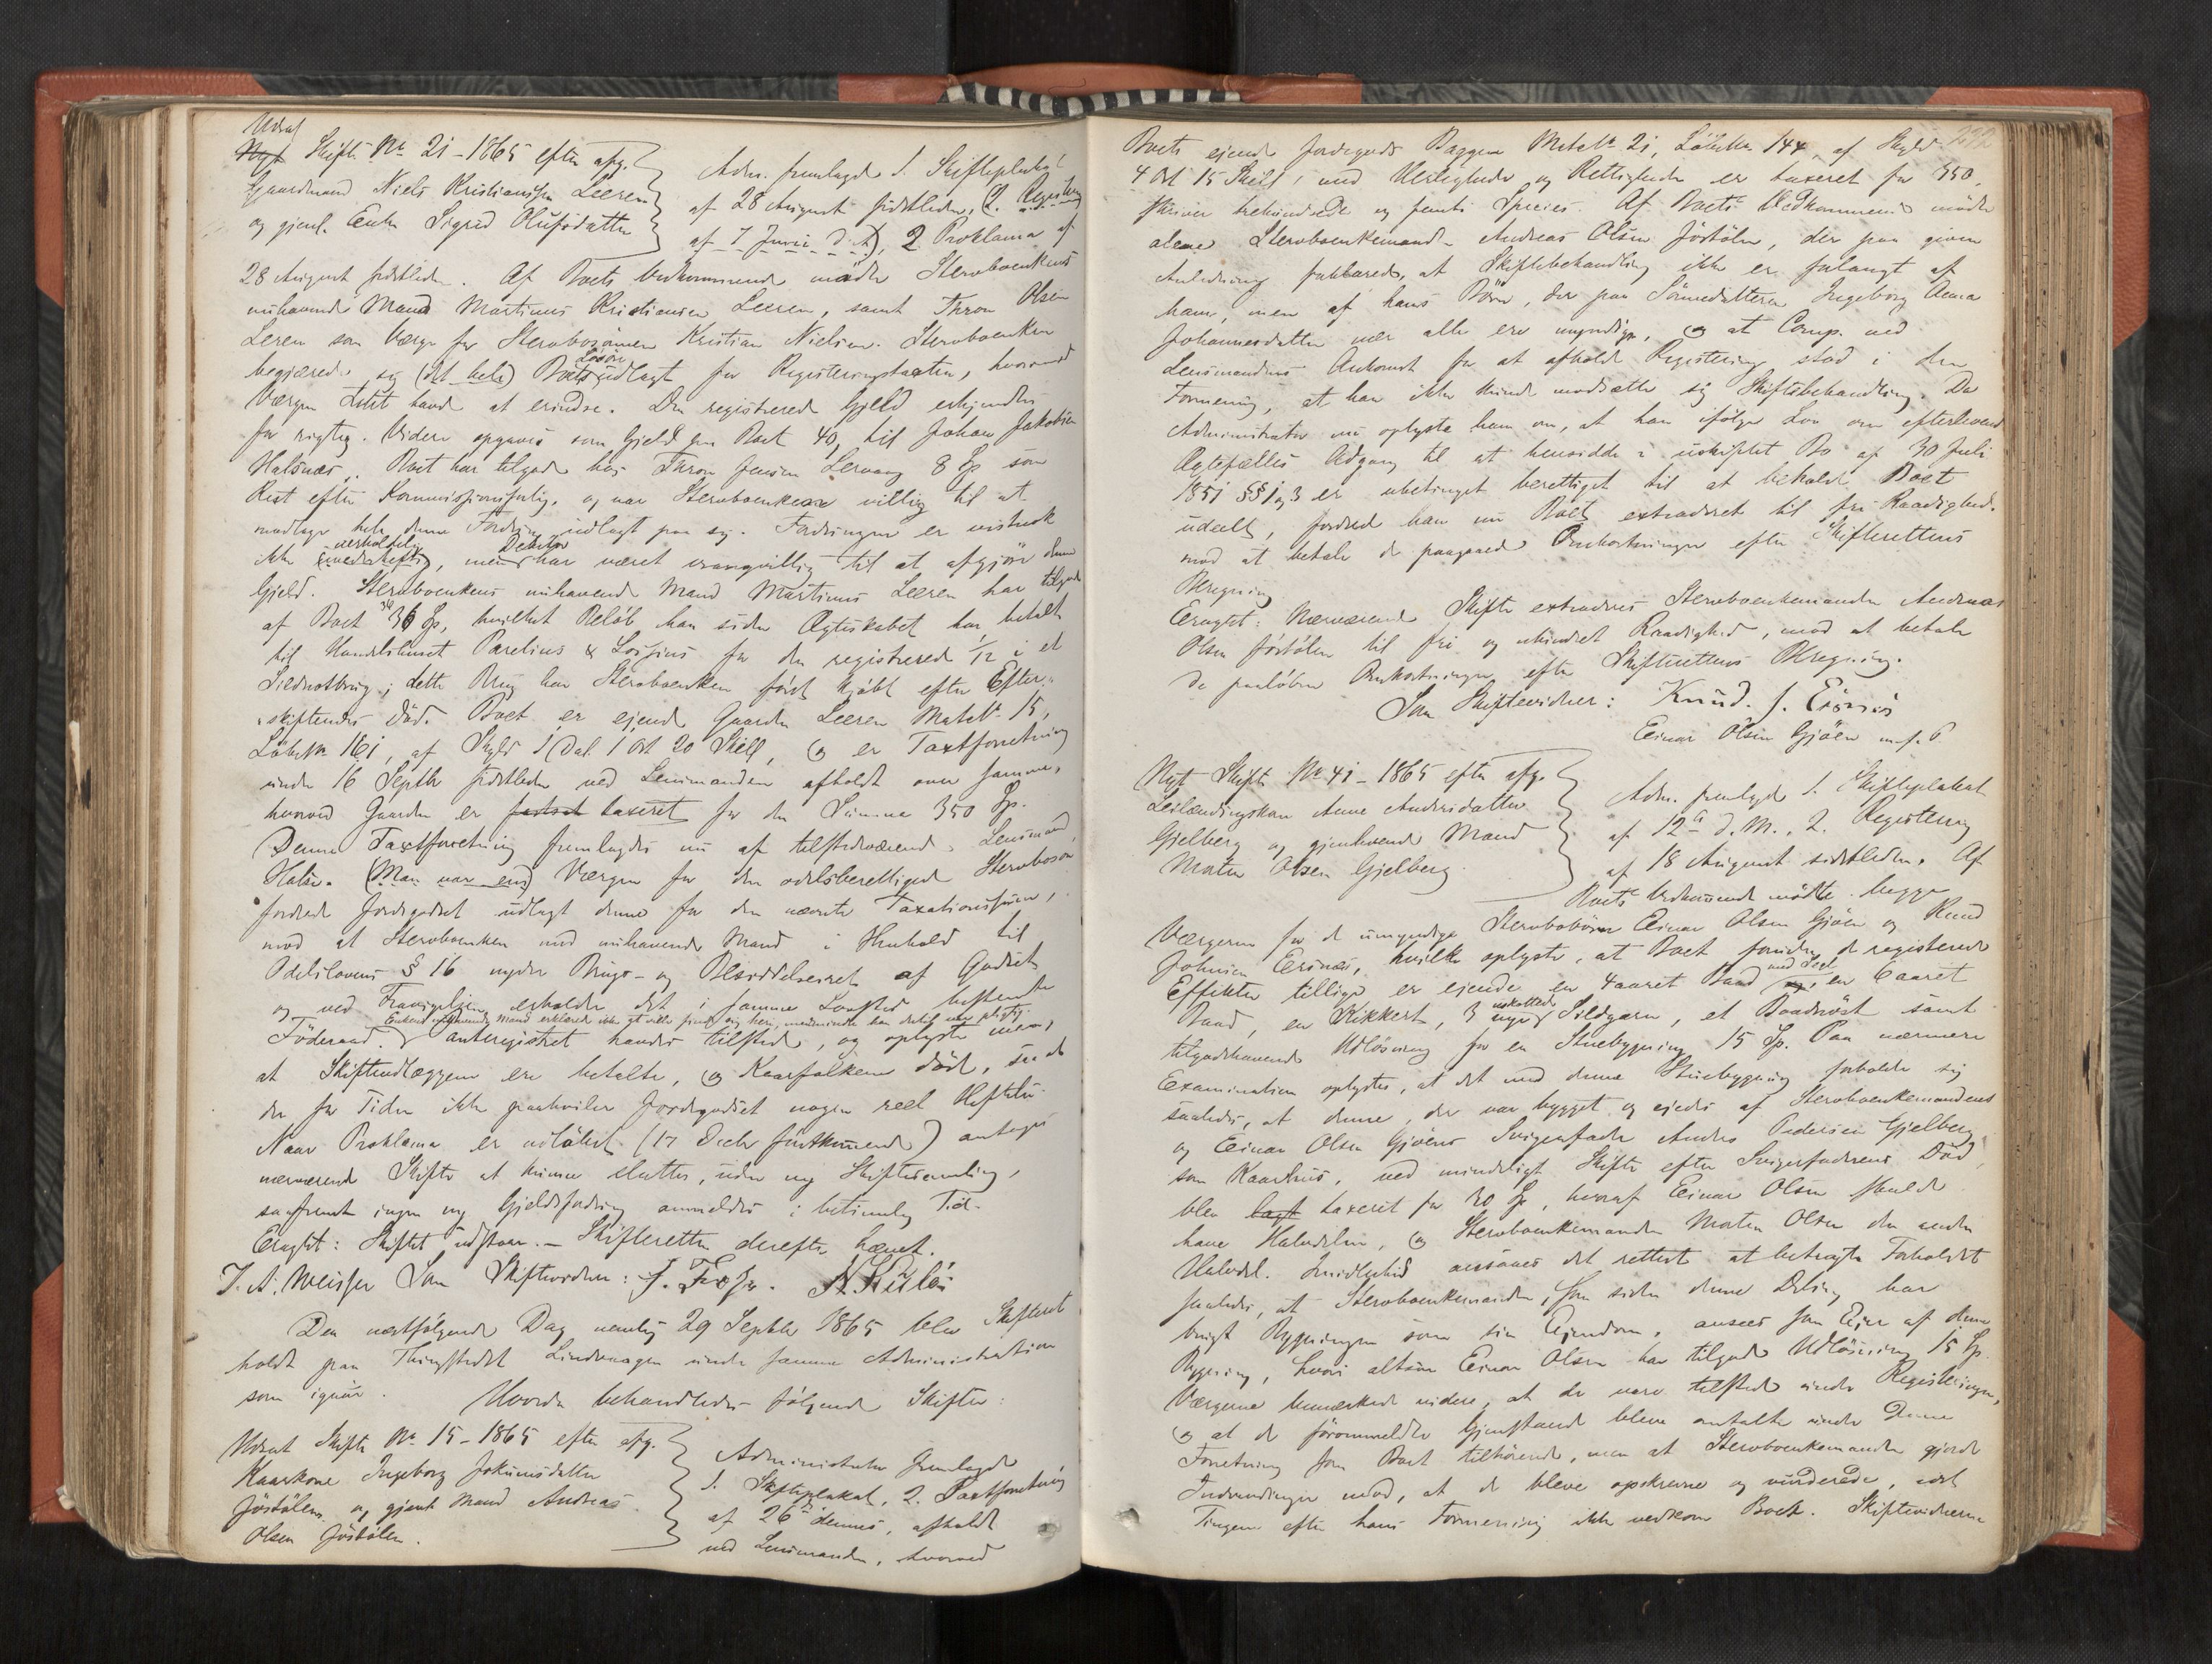 Udsat
Nyt Skifte No 21 - 1865 efter afg.
Gaardmand Niels Kristiansen Leeren
og gjenl. Enke Sigrid Olufsdatter
Adm. fremlagde 1. Skifteplakat
af 28 August sidstleden, (2. Registering
af 7 Juni d. A), 2. Proklama af
28 August sidstleden. Af Boets Vedkommende mødte Stervboenkens
nuhavende Mand Martinus Kristiansen Leeren, samt Thron Olsen
Leren som Værge for Stervbosønnen Kristian Nielsen. Stervboenken
begjærede sig (det hele) Boets Løsøre udlagt for Registeringstaxten, hvorved
Værgen Intet havde at erindre. Den registrerede Gjeld erkjendtes
for rigtig. Videre opgaves som Gjeld paa Boet 40, til Johan Jakobsen
Halsnæs. Boet har tilgode hos Thron Jensen Lervaag 8 Sp som
Rest efter Kommissionsforlig, og var Stervboenken villig til at
modtage hele denne Fordring udlagt paa sig. Fordringen er vistnok
ikke uerholdelig, men Debitor har været uvangvillig til at afgjøre denne
Gjeld. Stervboenkens nuhavende Mand Martinus Leeren har tilgode
af Boet 36 Sp, hvilket Beløb han siden Ægteskabet har betalt
til Handelshuset Parelius & Lossius for den registrerede 1/12 i et
Sildnotbrug; dette Brug har Stervboenken først kjøbt efter Efter-
skiftendes Død. Boet er ejende Gaarden Leeren Matr No 15,
Løbe No 161, af Skyld 1 Dal. 1 Ort 20 Skill, og er Taxtforretning
under 16 Septbr sidstleden ved Lensmanden afholdt over samme,
hvorved Gaarden er taxeret for den Summa 350 Sp.
Denne Taxtforretning fremlagdes nu af tilstedeværende Lensmand
Halse. (Man var eni) Værgen for den odelsberettigede Stervbosøn
fordrede Jordegodset udlagt denne for den nævnte Taxationssum,
mod at Stervboenken med nuhavende Mand i Henhold til
Odelslovens § 16 nyder Brugs- og Besiddelsesret af Godset
og ved Fravigelsen erholder det i samme Lovsted bestemte
Enkens nuhavende Mand erklærede ikke at ville finde sig heri, medmindre han dertil var pligtig.
Føderaad. Panteregistret havdes tilstede, og oplyste
at Skifteudlæggene ere betalte, og Kaarfolkene døde, saa at
der for Tiden ikke paahviler Jordegodset nogen reel Heftelse.
Naar Proklama er udløbet (17 Decbr førstkommende) antages
nærværende Skifte at kunne sluttes, uden ny Skiftesamling,
saafremt ingen ny Gjeldsfordring anmeldes i betimelig Tid.
Eragtet: Skiftet udstaar. - Skifteretten derefter hævet.
J. A. Meisser Som Skiftevidner:
Den næstfølgende Dag nemlig 29 Septbr 1865 blev Skifteret
holdt paa Thingstedet Lindvaagen under samme Administration
som igaar. Hvorda behandledes følgende Skifter:
Udsat Skifte No 15 - 1865 efter afg.
Kaarkone Ingeborg Jokumsdatter
Jøstølen og gjenl. Mand Andreas
Olsen Jøstølen.
Administrator fremlagde
1. Skifteplakat, 2. Taxtforretning
af 26de dennes, afholdt
ved Lensmanden, hvorved
Boets ejende Jordegods Baggen Matr No 21, Løbe No 144, af Skyld
4 Ort 15 Skill, med Herligheder og Rettigheder er taxeret for 350,
skriver trehundrede og femti Species. Af Boets Vedkommende mødte
alene Stervboenkemand Andreas Olsen Jøstølen, der paa given
Anledning forklarede, at Skiftebehandling ikke er forlangt af
ham, men af hans Børn, der paa Sønnedatteren Ingeborg Anna
Johannesdatter nær alle ere myndige, og at Comp. ved
Lensmandens Ankomst for at afholde Registering stod i den
Formening, at han ikke kunde modsætte sig Skiftebehandling. Da
Administrator nu oplyste ham om, at han ifølge Lov om efterlevende
Ægtefælles Adgang til at hensidde i uskiftet Bo af 30 Juli
1851 §§ 1 og 3 er ubetinget berettiget til at beholde Boet
udeelt, fordrede han nu Boet extraderet til fri Raadighed.
mod at betale de paagaaede Omkostninger efter Skifterettens
Beregning.
Eragtet: Nærværende Skifte extraderes Stervboenkemanden Andreas
Olsen Jøstølen til fri og uhindret Raadighed, mod at betale
de paaløbne Omkostninger efter Skifterettens Beregning.
Som Skiftevidner: Knud. J.
Einar Olsen Gjøen m. f. P.
Nyt Skifte No 41 - 1865 efter afg.
Leilændingskone Anne Andersdatter
Gjelberg og gjenlevende Mand
Morten Olsen Gjelberg.
Adm. fremlagde 1. Skifteplakat
af 12te d. M., 2. Registering
af 18 August sidstleden. Af
Boets Vedkommende mødte begge
Værgerne for de umyndige Stervbobørn Einar Olsen Gjøen og Knud
Johnsen Ersnæs, hvilke oplyste, at Boet foruden de registerede
Effekter tillige er ejende en 4aaret Baad med Seil, en 6aaret
Baad, en Kikkert, 3 nye uskattede Sildgarn, et Baadnøst samt
tilgodehavende Udløsning for en Stuebygning 15 Sp. Paa nærmere
Examination oplystes, at det med denne Stuebygning forholder sig
saaledes, at denne, der var bygget og ejedes af Stervboenkemandens
og Einar Olsen Gjøens Svigerfader Anders Pedersen Gjelberg
som Kaarhus, ved mindeligt Skifte efter Svigerfaderens Død
blev taxeret for 30 Sp, hvoraf Einar Olsen skulde
have Halvdelen, og Stervboenkemanden Morten Olsen den anden
Halvdel. Imidlertid ansaaes det rettest at betragte Forholdet
saaledes, at Stervboenkemanden, som siden denne Deling har
brugt Bygningen som sin Ejendom, ansees som Ejer af denne
Bygning, hvori altsaa Einar Olsen har tilgode Udløsning 15 Sp.
Værgerne bemærkede videre, at de vare tilstede under Registeringen,
og at de førommeldte Gjenstande bleve omtalte under denne
Forretning som Boet tilhørende, men at Stervboenkemanden gjorde
Indvendinger imod, at de bleve opskrevne og vurderede, idet
Tingene efter hans Formening ikke vedkom Boet. Skiftevidnerne